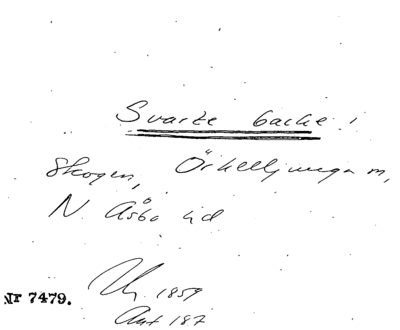 Svarte backe!
Skogen, Örkelljunga m,
N. Åsbo hd
Nr 7479.
1859
Ant 187